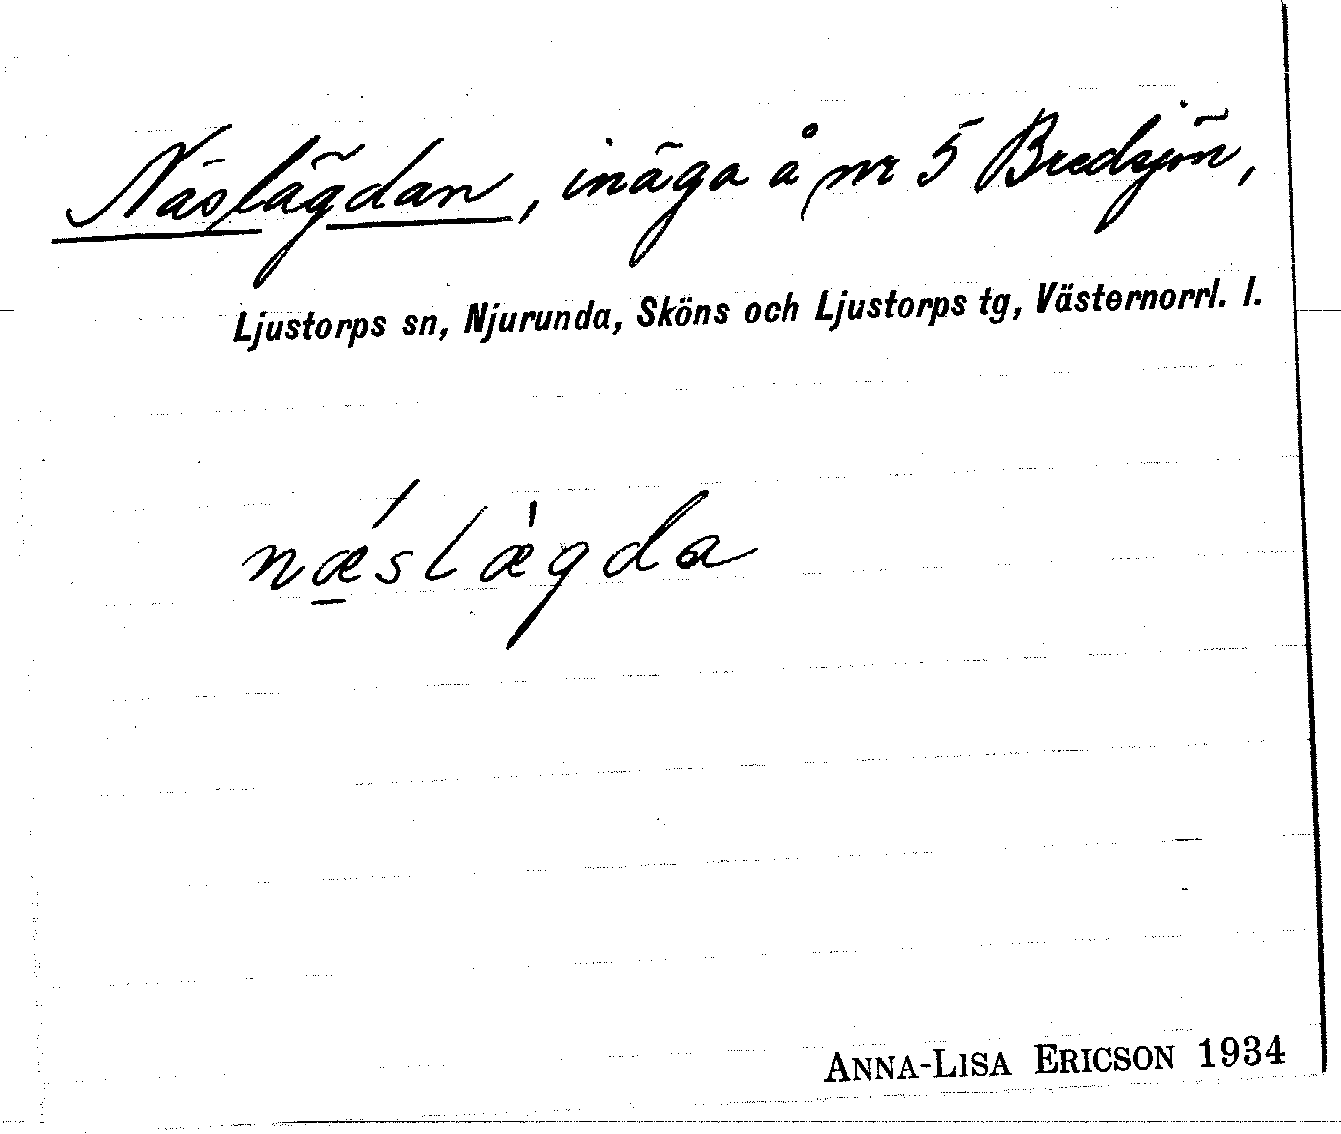 Näslägdan, inäga å nr 5 Bredsjön,
Ljustorps sn, Njurunda, Sköns och Ljustorps tg, Västernorrl. l.
nǽ̲slæ̀gda
ANNA-LISA ERICSON 1934